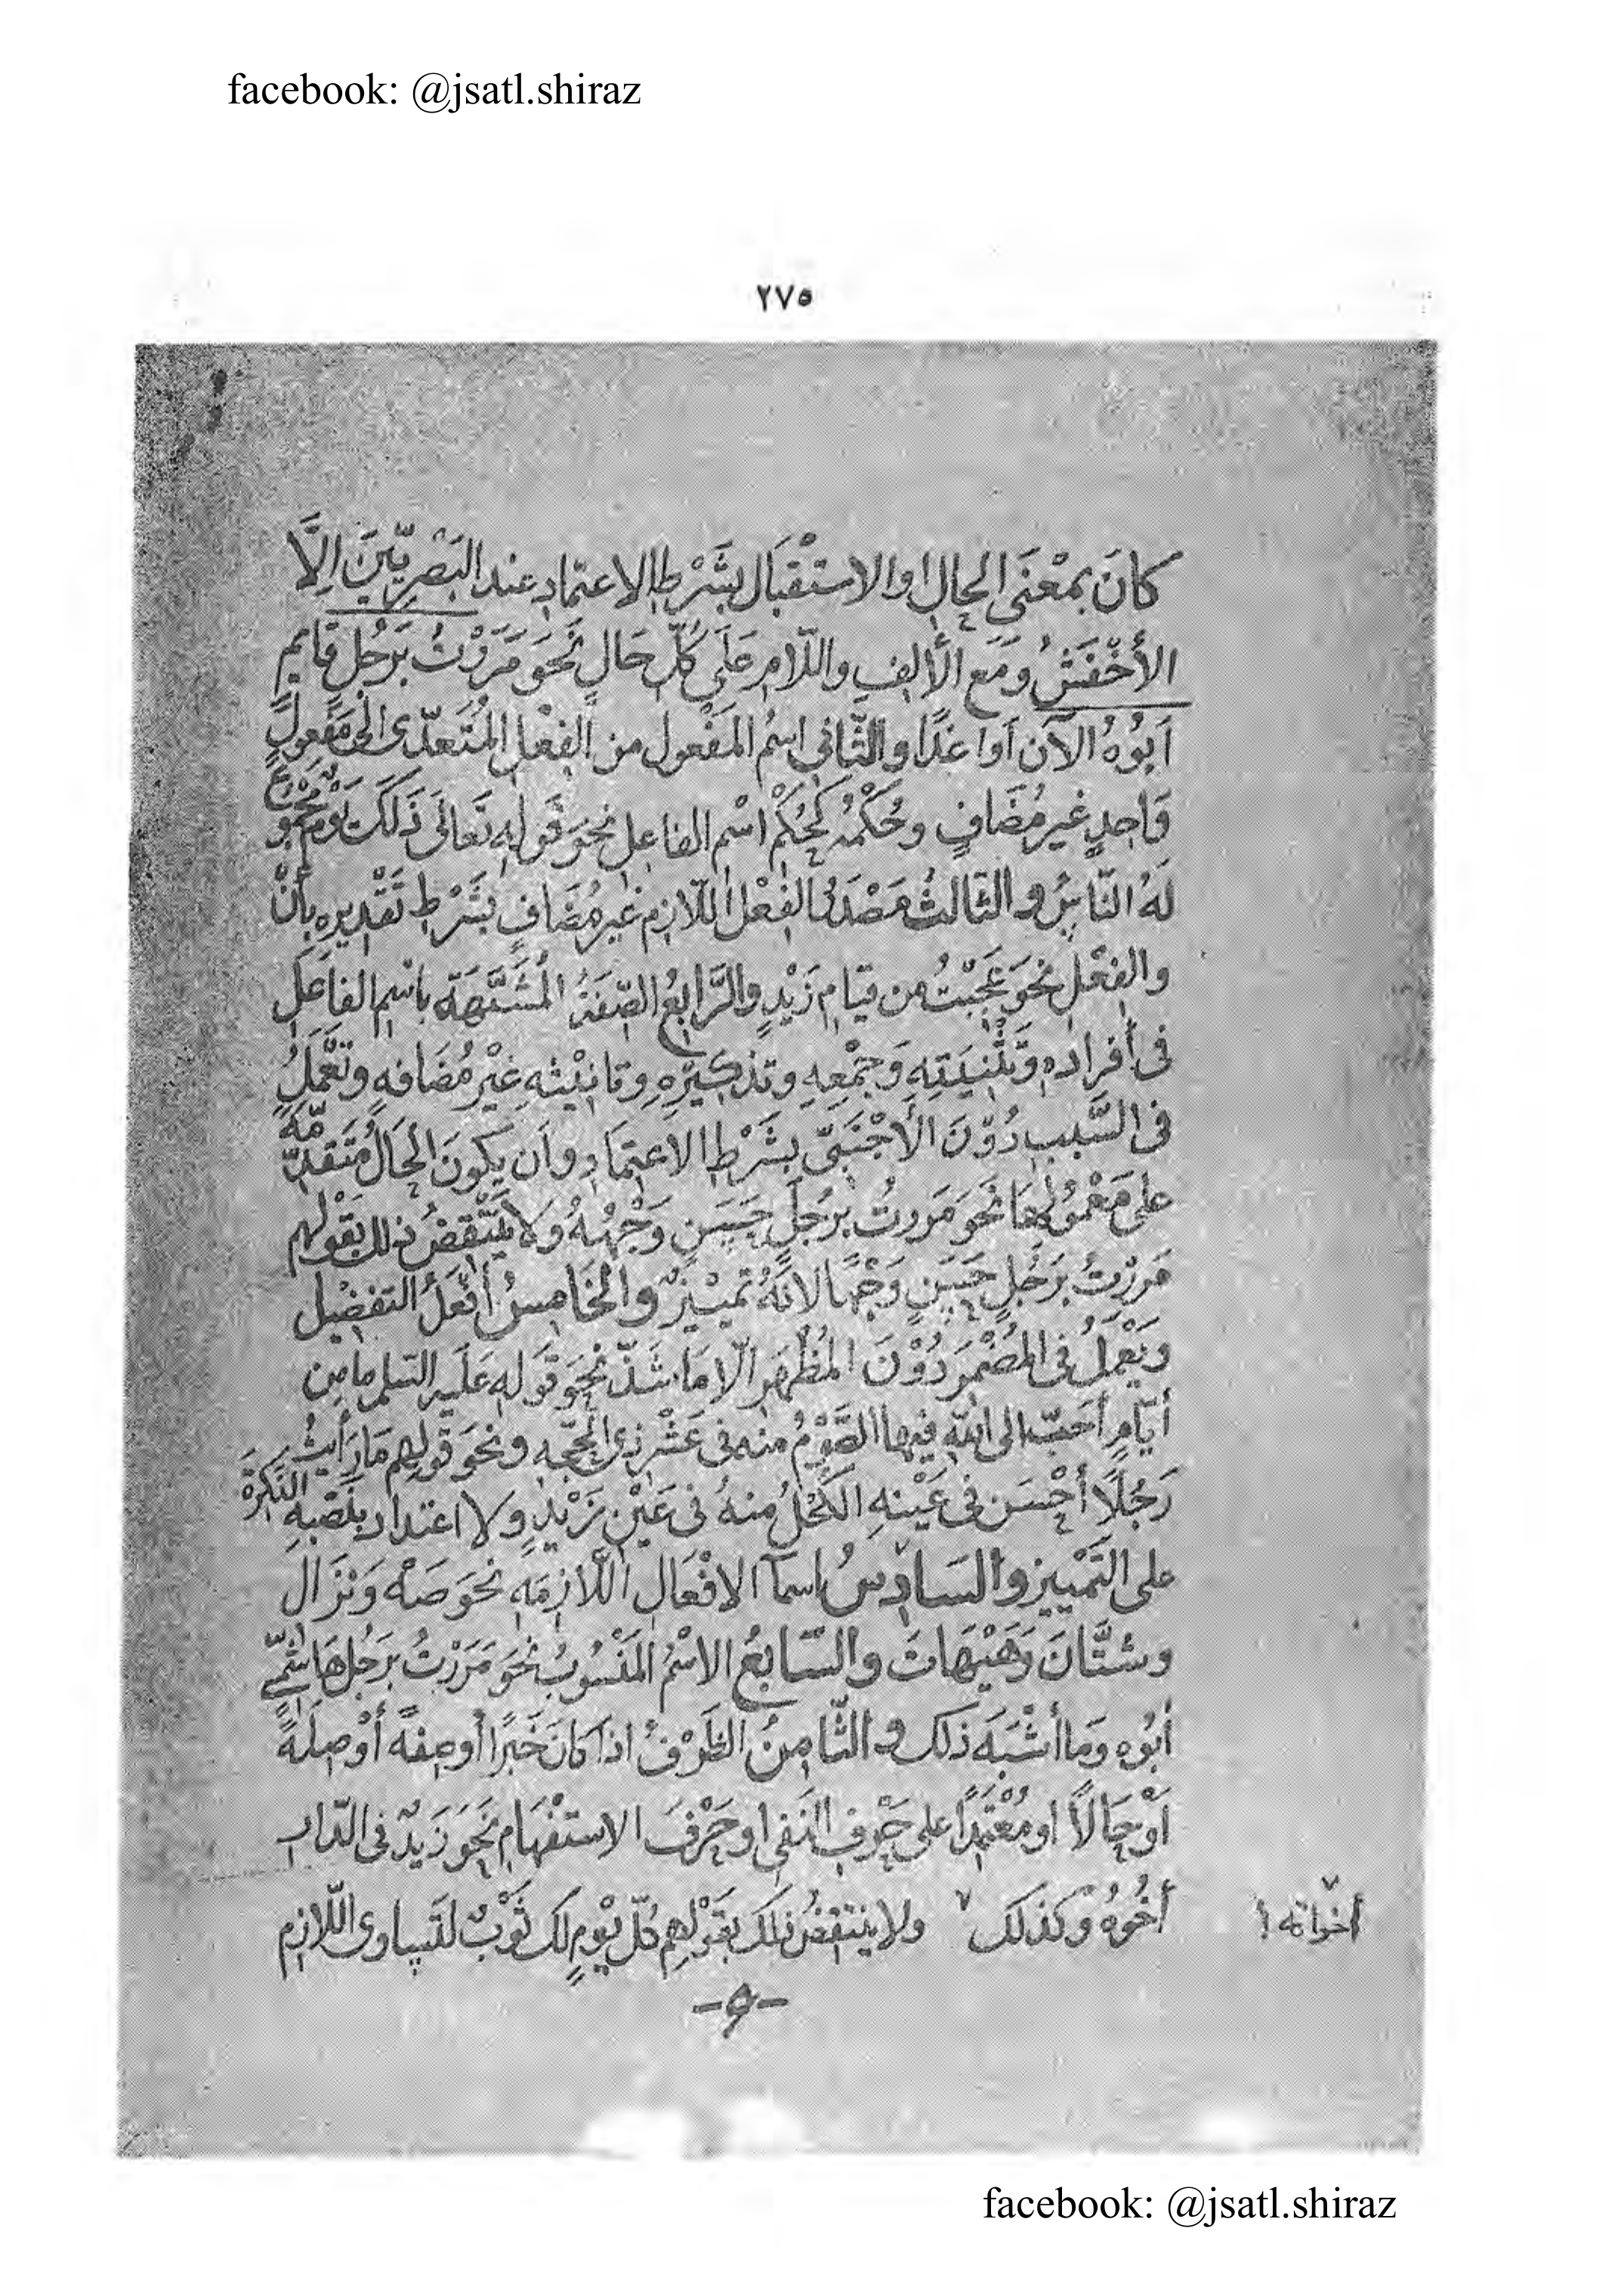 facebook: @jsatl.shiraz
٢٧٥
كانَ بمعْنَى الحالِ او الاستْقبَال بشَرْطِ الاعتمادِ عند البَصرِيّينَ اِلَّا
الأَخْفَشُ وَمَع الألِفِ واللّامِ عَلَى كُلّ حَالٍ نَحَو مَرَرْتُ بَرَجُلٍ قايمٍ
اَبُوْهُ الآن أوْ غدًا والثّانى اسمُ المَفْعول من الفِعْلِ المُتَعدّى الىٰ مَفعولٍ
وَاحِدٍ غير مُضَافٍ وحُكْمُه كَحُكْمِ اسْم الفاعِلِ نحوَ قَولِهِ تَعَالَى ذَلكَ يَوْمٌ مَجْمُوعٌ
لَهُ النّاسُ و الثالثُ مَصْدَرُ الفِعْلِ اللّازِم غير مُضَافٍ بشَرْطِ تَقْدِيرِه بأنْ
والفِعْلِ نحوَ عَجِبْتُ من قيَامٍ زَيْدٍ والرَّابِعُ الصِّفَةُ المُشَبَّهَة باسْمِ الفاعَلِ
فى أفراده وتَثْنيَتِهِ وَجَمْعِهِ وتذكيرِهِ وتانيْثِهِ غيْرِ مُضَافهٍ وتَعْمَلُ
فى السَّبب دُوْنَ الأَجْنَبىّ بشَرْطِ الاعتمادِ وأن يكونَ الحَالُ مُتَقدّمَة
على مَعْمُولِهَا نَحوَ مَررتُ برَجُلٍ حَسَنٍ وَجْهُهُ ولا يَنْتَقِضُ ذلك بقَوْلهم
مَررْتُ بَرَجُلٍ حَسَنٍ وَجْهًا لانّهُ تمييْزٌ والخَامِسُ أفْعَلُ التفضِيل
وَيَعْمَلُ فى المُضْمَر دُوْنَ المُظْهَرِ الّا مَا شَذّ نحوَ قَولِهِ عَلَيهِ السّلم ما من
أيّامٍ أحَبّ الى اللهِ فيها الصَّوْمُ منه فى عَشْرِ ذى الحجّهِ ونحوَ قَولِهم مَا رَأيتُ
رَجُلًا أحْسَن فى عَيْنهِ الكُحْلُ منهُ فى عَيْنِ زَيْدٍ ولا اعتداد بنَصْبهِ النَّكرَةَ
على التَمْييز والسَادِسُ اسمآ الافْعَالِ اللّازمَهِ نحوَ صَهْ وَنَزَالِ
وشَتَّانَ وَهَيْهَاتَ والسّابعُ الاسْمُ المَنْسُوبُ نحَوَ مَرَرْتُ برَجُلٍ هَاشمّىٍ
أبُوه وَما أشْبَهَ ذلك و الثّامِنُ الظَرْفُ اذا كَانَ خَبَرًا أوصِفةً أوْ صِلَةً
اَوْ حَالًا او مُعْتَمِدًا على حَرْفِ النَفى او حَرْفَ الاستفْهَامِ نَحَوَ زَيْدٌ فى الدّارِ
أخُوْهُ وكذلك ٧ ولا ينتقِضُ ذلك بقَوْلِهِم كلّ يَوْمٍ لك ثَوْبٌ لتَساوى اللّازمِ
٧
أخواته !
-و-
facebook: @jsatl.shiraz